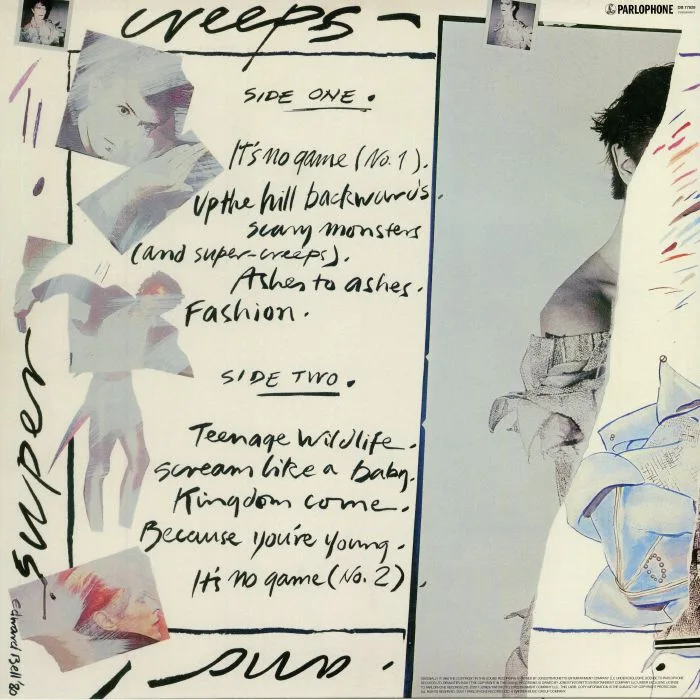 creeps
PARLOPHONE
SIDE ONE.
It's no game (No. 1).
Up the hill backwards.
scary monsters
(and super-creeps).
Ashes to ashes.
Fashion.
SIDE TWO.
Teenage Wildlife.
scream like a baby.
Kingdom come.
Because you're young.
It's no game (No. 2)
super
Edward Bell '80
and